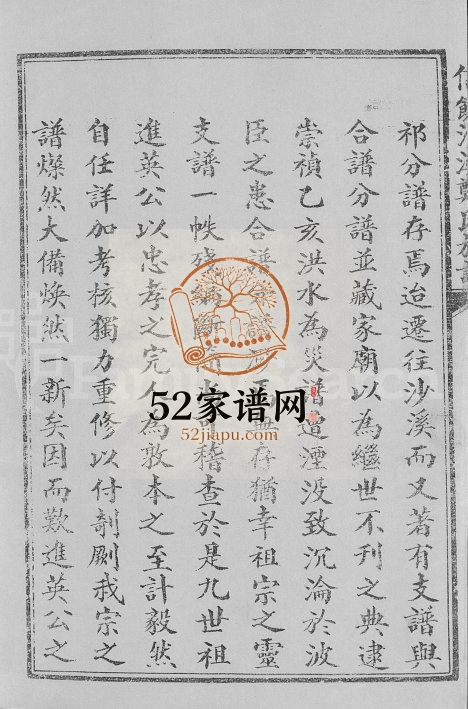 祁分譜存焉迨遷往沙溪而又著有支譜與
合譜分譜並藏家廟以為繼世不刋之典逮
崇禎乙亥洪水為災譜遭湮没致沉淪於波
臣之患合譜分譜無存猶幸祖宗之靈
支譜一帙殘編稽查於是九世祖
進英公以忠孝之完人為敦本之至計毅然
自任詳加考核獨力重修以付剞劂我宗之
譜燦然大備煥然一新矣因而歎進英公之
52家谱网
52jiapu.com